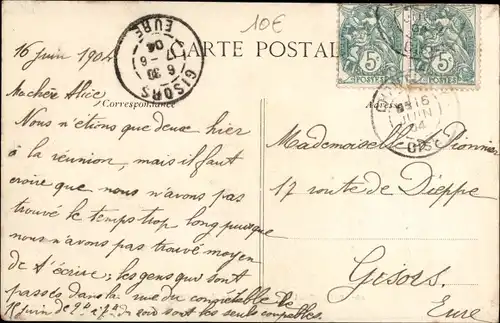 10€
CARTE POSTALE
Correspondance
Adresse
GISORS
6 30
17 -6
04
EURE
5
POSTES
5
POSTES
16
JUIN
04
16 juin 1904
Ma chère Alice
Nous n'étions que deux hier
à la réunion, mais il faut
croire que nous n'avons pas
trouvé le temps trop long puisque
nous n'avons pas trouvé moyen
de t'écrire; les gens qui sont
passés dans la rue du connétable le
15 juin de 2h à 7h du soir sont les seuls coupables.
Mademoiselle Dionnier
17 route de Dieppe
Gisors.
Eure